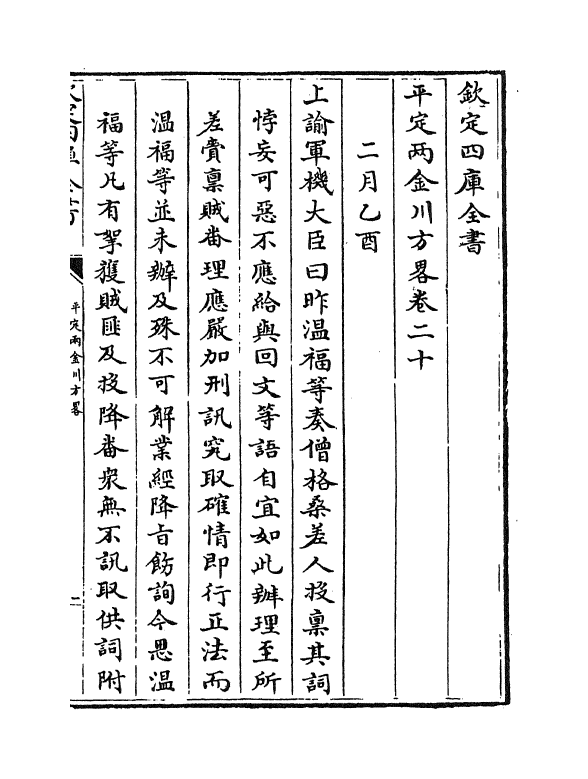 欽定四庫全書
平定两金川方畧卷二十
二月乙酉
上諭軍機大臣曰昨温福等奏僧格桑差人投禀其詞
悖妄可惡不應給與回文等語自宜如此辦理至所
差賫禀賊番理應嚴加刑訊究取確情即行正法而
温福等並未辦及殊不可解業經降旨飭詢今思温
福等凡有拏獲賊匪及投降番衆無不訊取供詞附
平定兩金川方畧